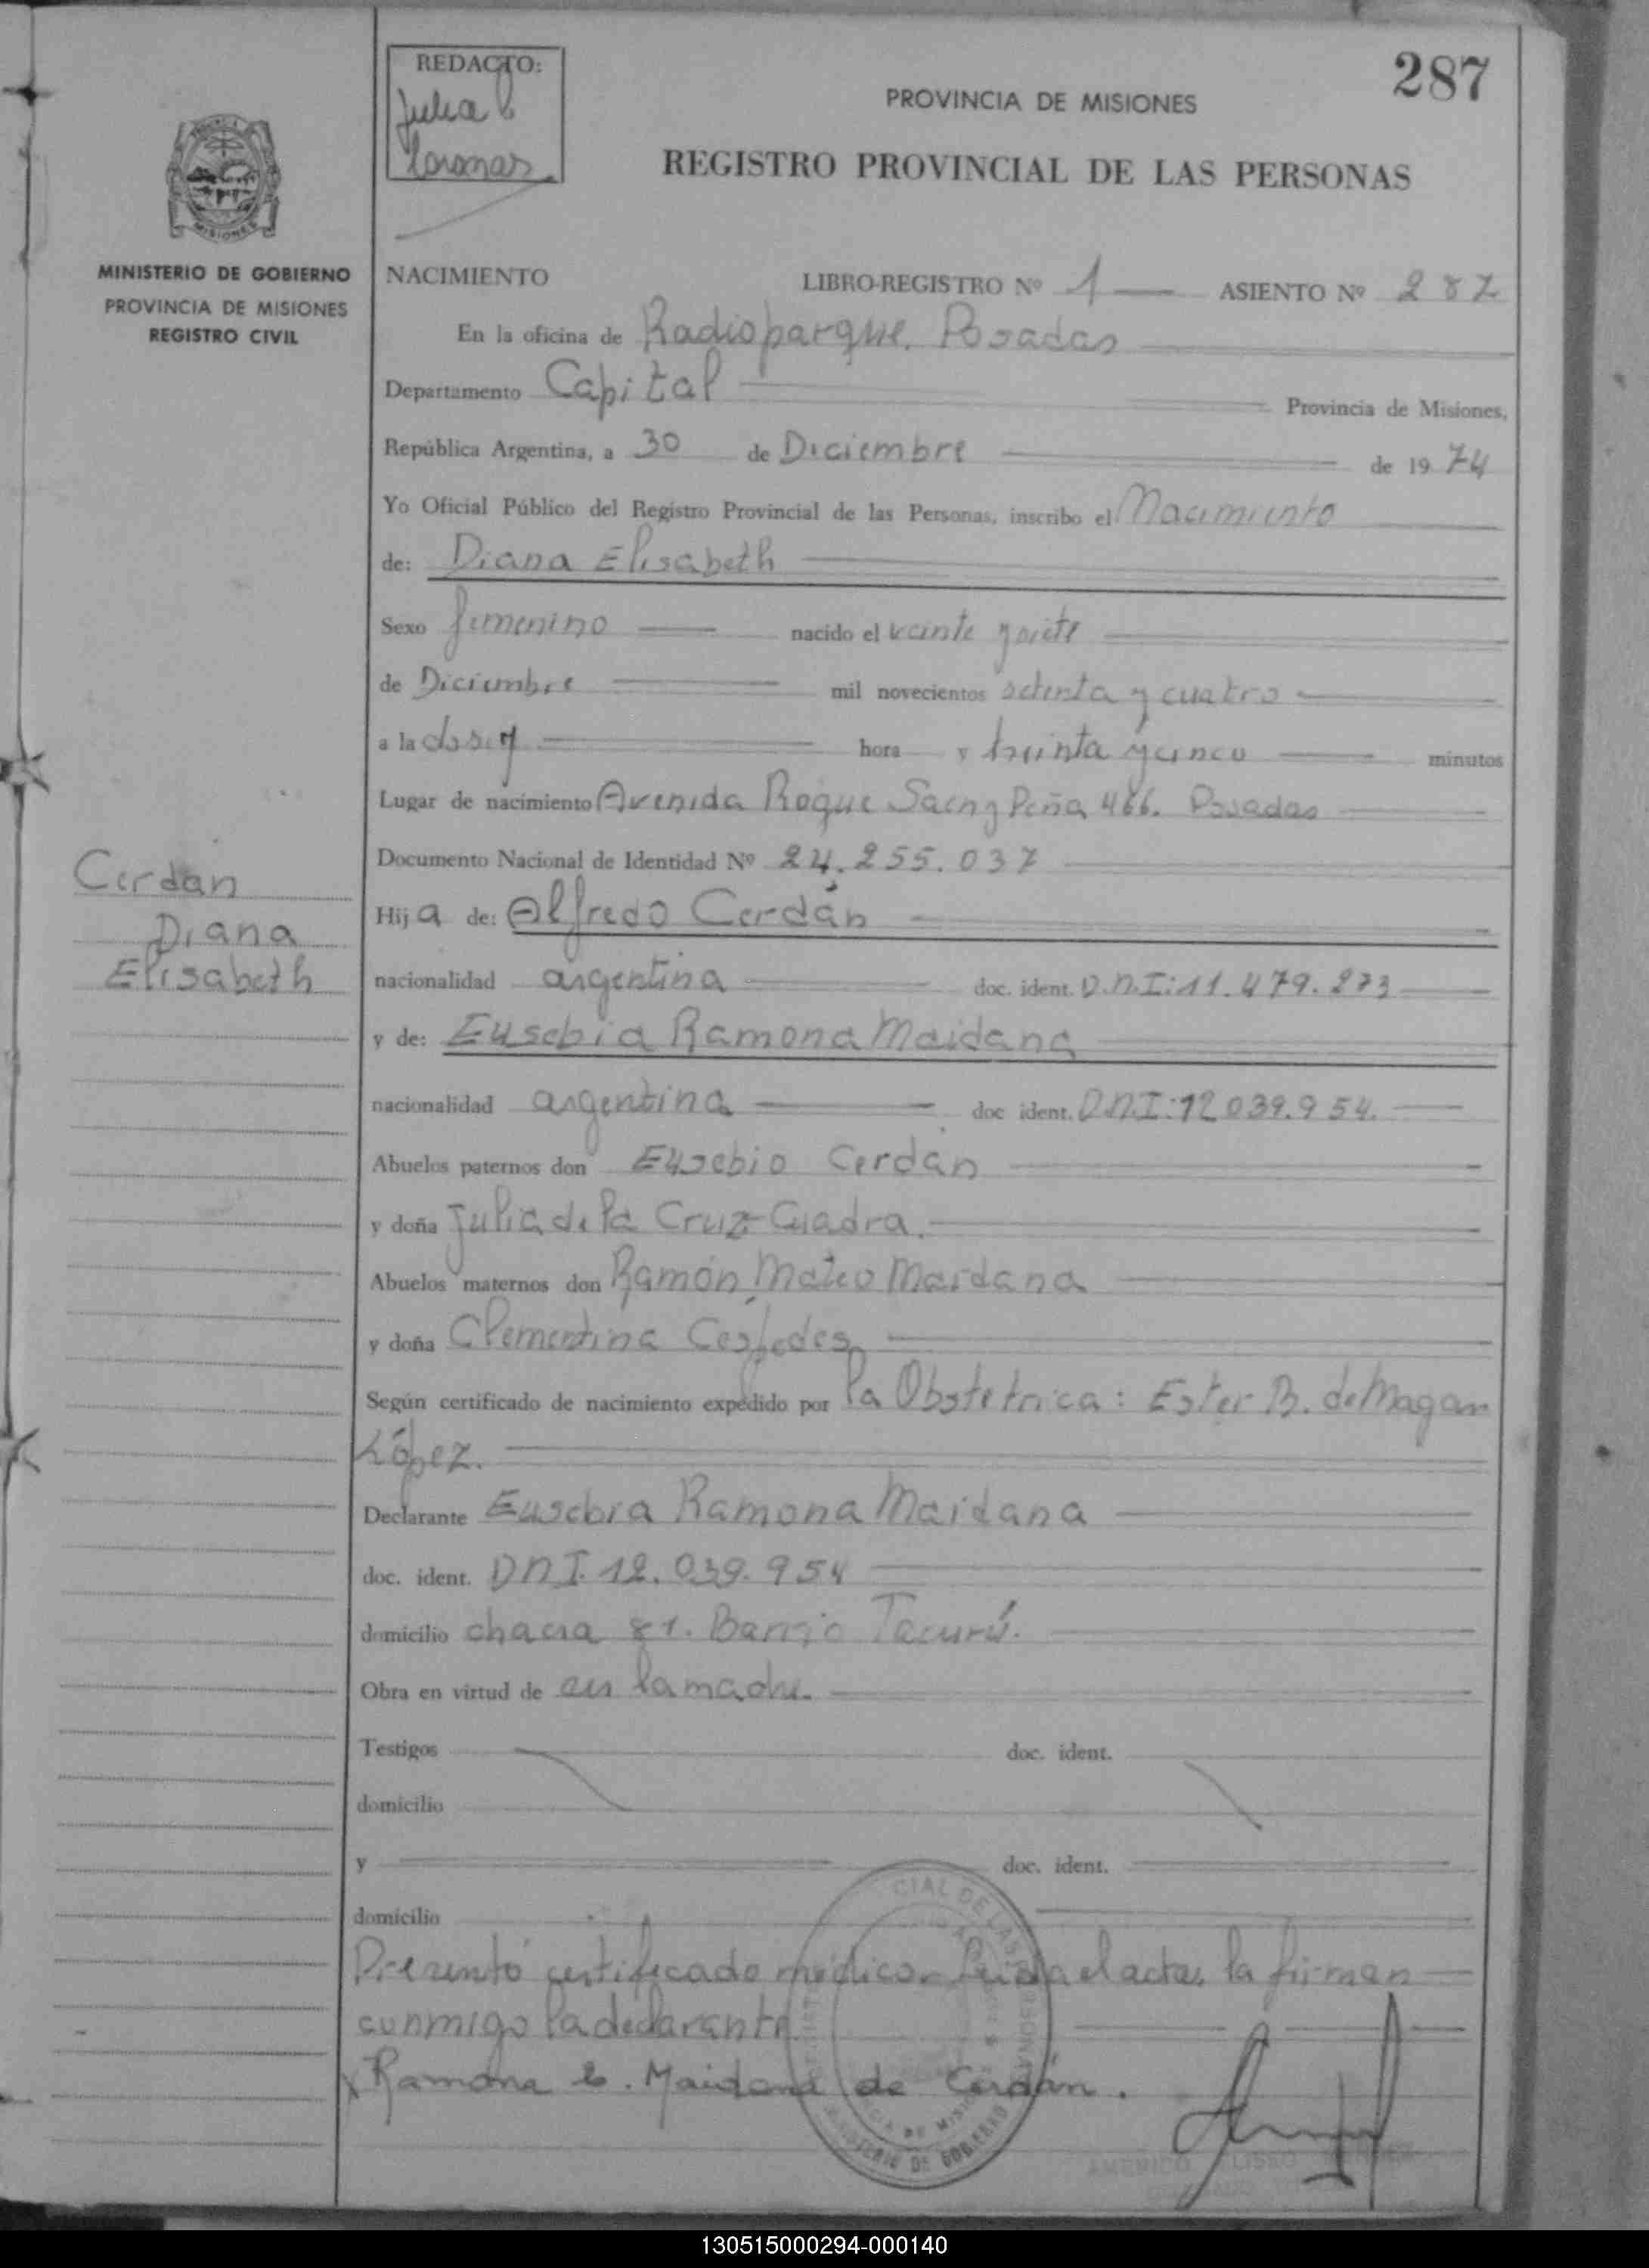 287
REDACTO:
Julia
PROVINCIA DE MISIONES
REGISTRO PROVINCIAL DE LAS PERSONAS
MISIONES
MINISTERIO DE GOBIERNO
PROVINCIA DE MISIONES
REGISTRO CIVIL
NACIMIENTO LIBRO-REGISTRO Nº 1 ASIENTO Nº 287
En la oficina de Radioparque. Posadas
Departamento Capital Provincia de Misiones,
República Argentina, a 30 de Diciembre de 19 74
Yo Oficial Público del Registro Provincial de las Personas, inscribo el Nacimiento
de: Diana Elisabeth
Sexo femenino nacido el veinte y siete
de Diciembre mil novecientos setenta y cuatro
a la dos y hora y treinta y cinco minutos
Lugar de nacimiento Avenida Roque Saenz Peña 466. Posadas
Documento Nacional de Identidad Nº 24.255.037
Cerdan
Diana
Elisabeth
Hija de: Alfredo Cerdán
nacionalidad argentina doc. ident. D.N.I: 11.479.273
y de: Eusebia Ramona Maidana
nacionalidad argentina doc ident. D.N.I: 12 039.954.
Abuelos paternos don Eusebio Cerdán
y doña Julia de la Cruz Cuadra.
Abuelos maternos don Ramón Mateo Maidana
y doña Clementina Cespedes
Según certificado de nacimiento expedido por la Obstetrica: Ester B. de Magan
López.
Declarante Eusebia Ramona Maidana
doc. ident. DNI. 12.039.954
domicilio chacra 81. Barrio Tacurú.
Obra en virtud de ser la madre.
Testigos doc. ident.
domicilio
y doc. ident.
domicilio
Presentó certificado médico. Leida el acta, la firman
conmigo la declarante
Ramona E. Maidana de Cerdán.
MINISTERIO DE GOBIERNO
130515000294-000140